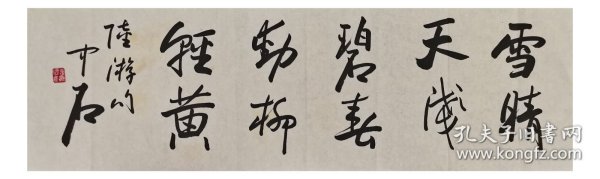 雪晴
天浅
碧春
動柳
輕黄
陸游句
中石
孔夫子旧书网
www.kongfz.com